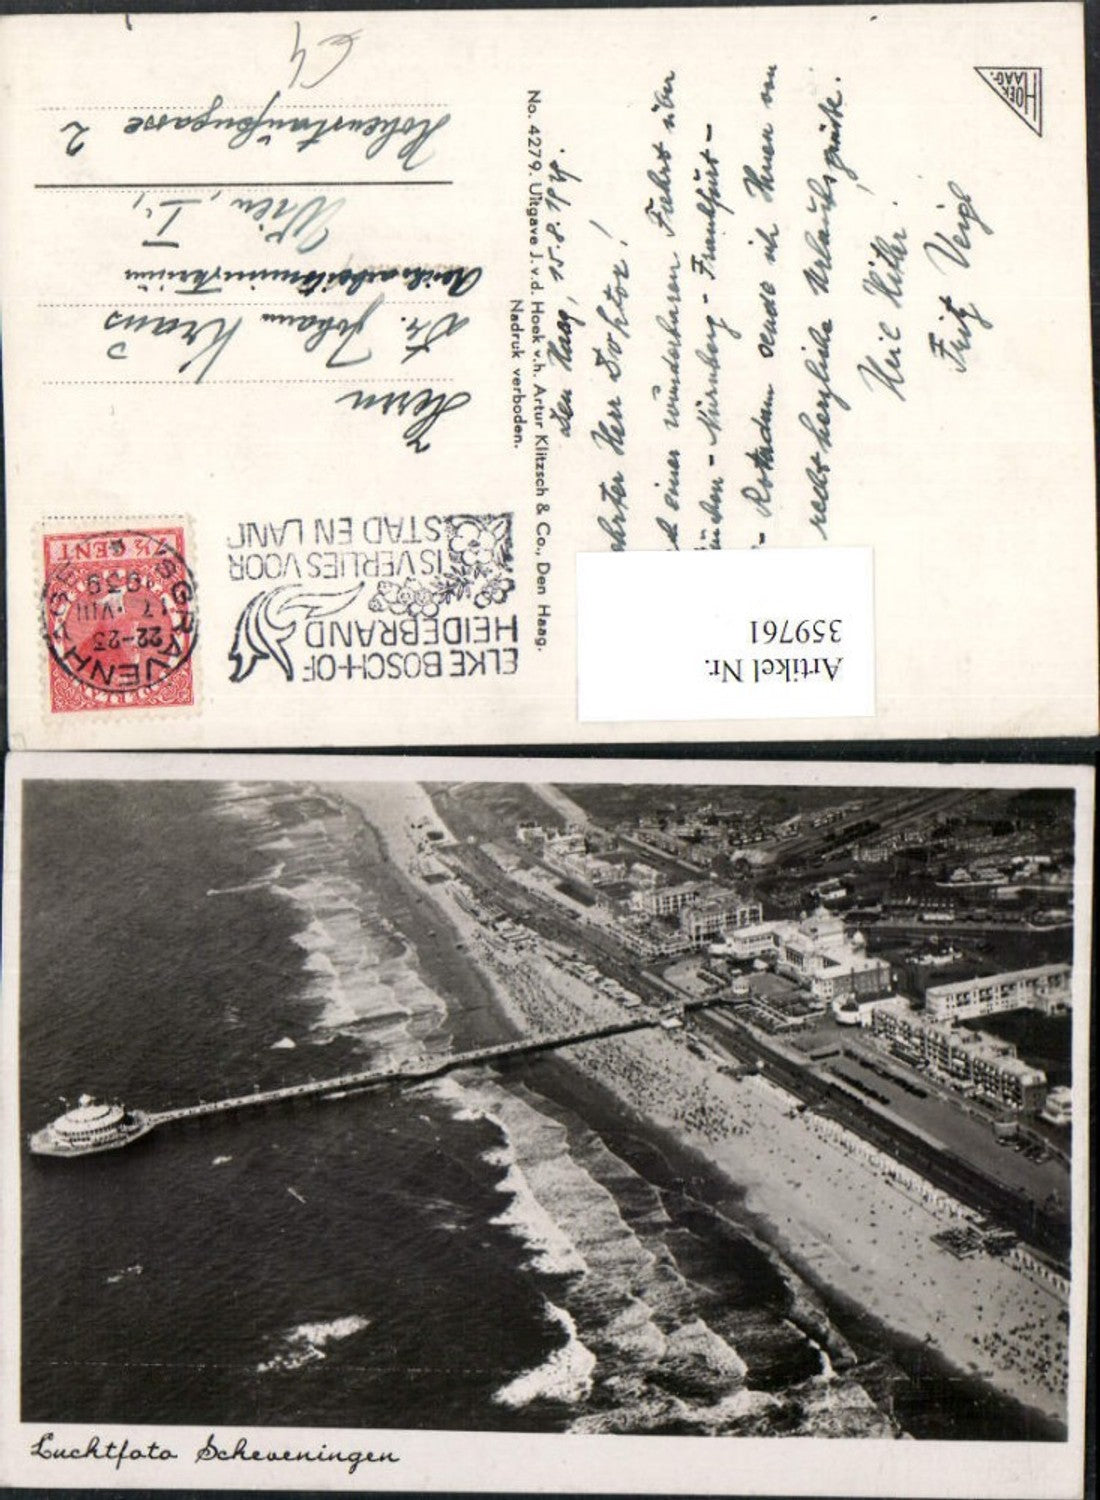 Den Haag, 15.8.1939.
Herr Doktor!
einer wunderbaren Fahrt über
- Nürnberg - Frankfurt -
- Rotterdam sende ich Ihnen
recht herzliche Urlaubsgrüße.
Heil Hitler!
Fritz
HOEK
HAAG.
No. 4279. Uitgave J.v.d. Hoek v.h. Artur Klitzsch & Co., Den Haag.
Nadruk verboden.
ELKE BOSCH- OF
HEIDEBRAND
IS VERLIES VOOR
STAD EN LAND
'S GRAVENHAGE
22-23
17.VIII
1939
7½ CENT
Herrn
Dr. Johann Kraus
Reichsarbeitsministerium
Wien, I.,
Hohenstaufengasse 2
Artikel Nr.
359761
Luchtfoto Scheveningen